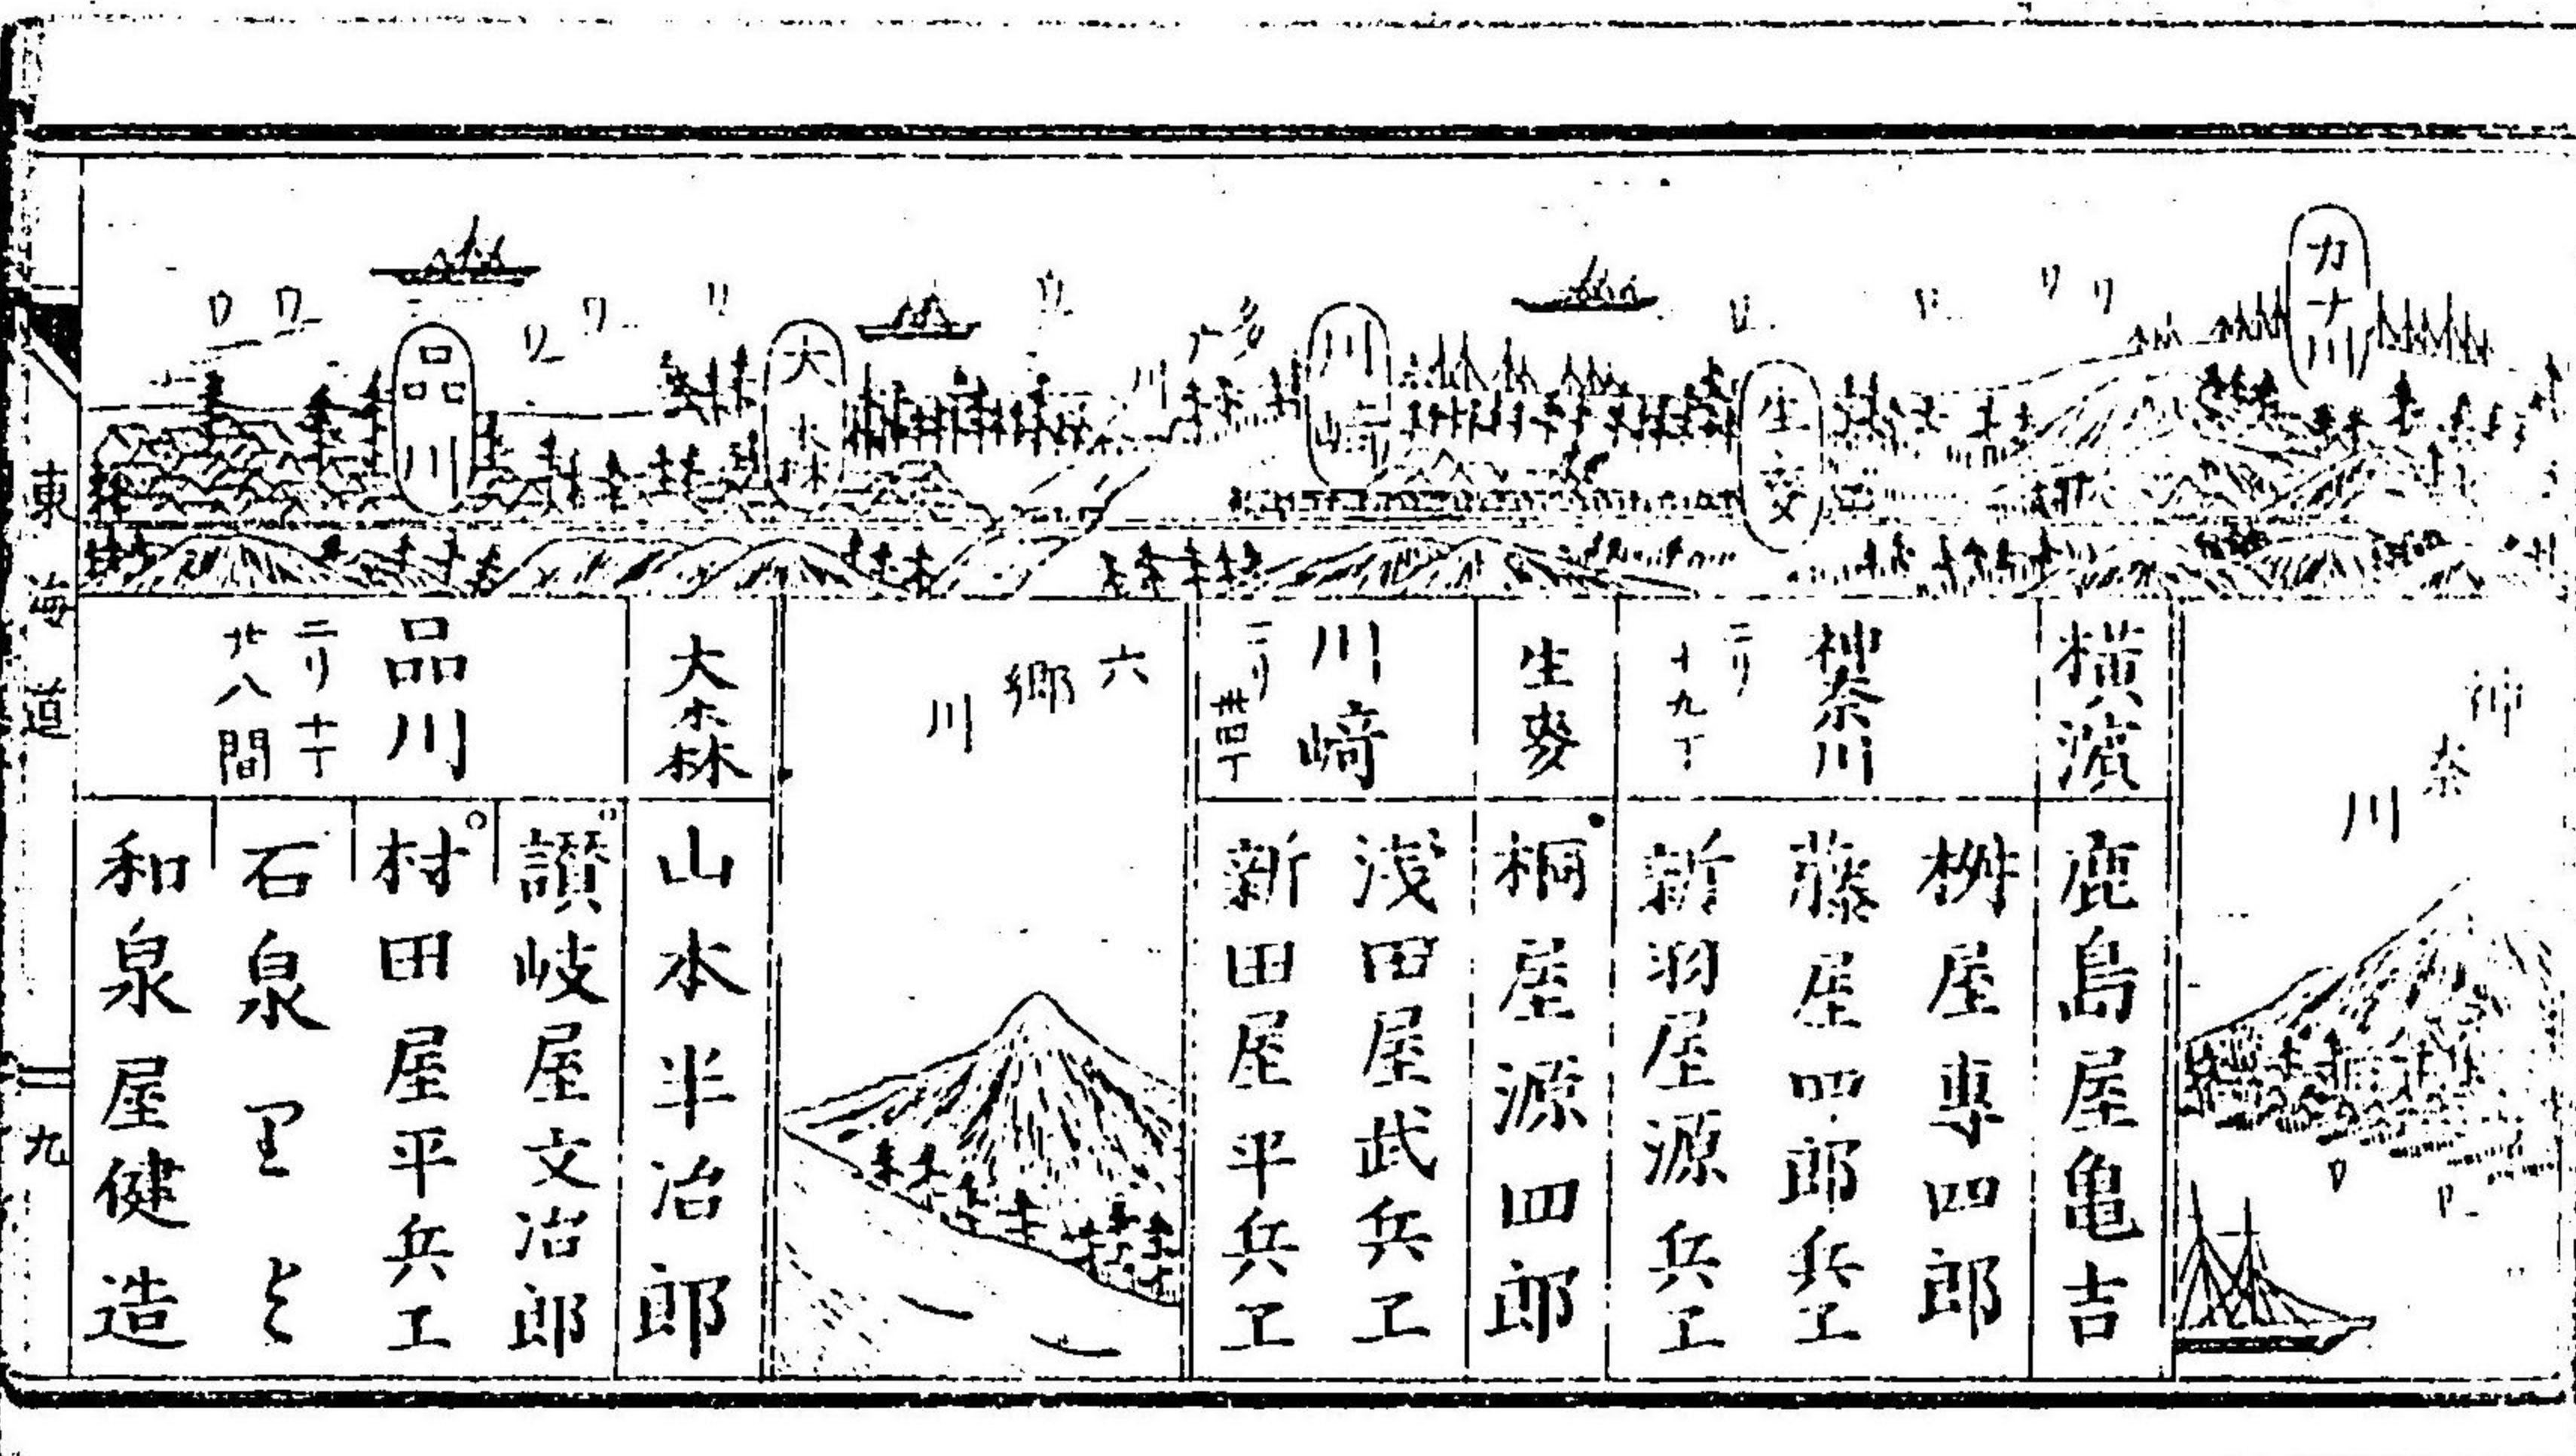 カナ川
生麥
川崎
川
大森
品川
神奈川
横濱
鹿島屋亀吉
神奈川
二リ
十九丁
桝屋専四郎
藤屋四郎兵エ
新羽屋源兵エ
生麥
桐屋源四郎
川崎
二リ
丗四丁
浅田屋武兵エ
新田屋平兵エ
六郷川
大森
山本半治郎
品川
二リ十丁
廿八間
讃岐屋文治郎
村田屋平兵エ
石泉
和泉屋健造
東海道
九